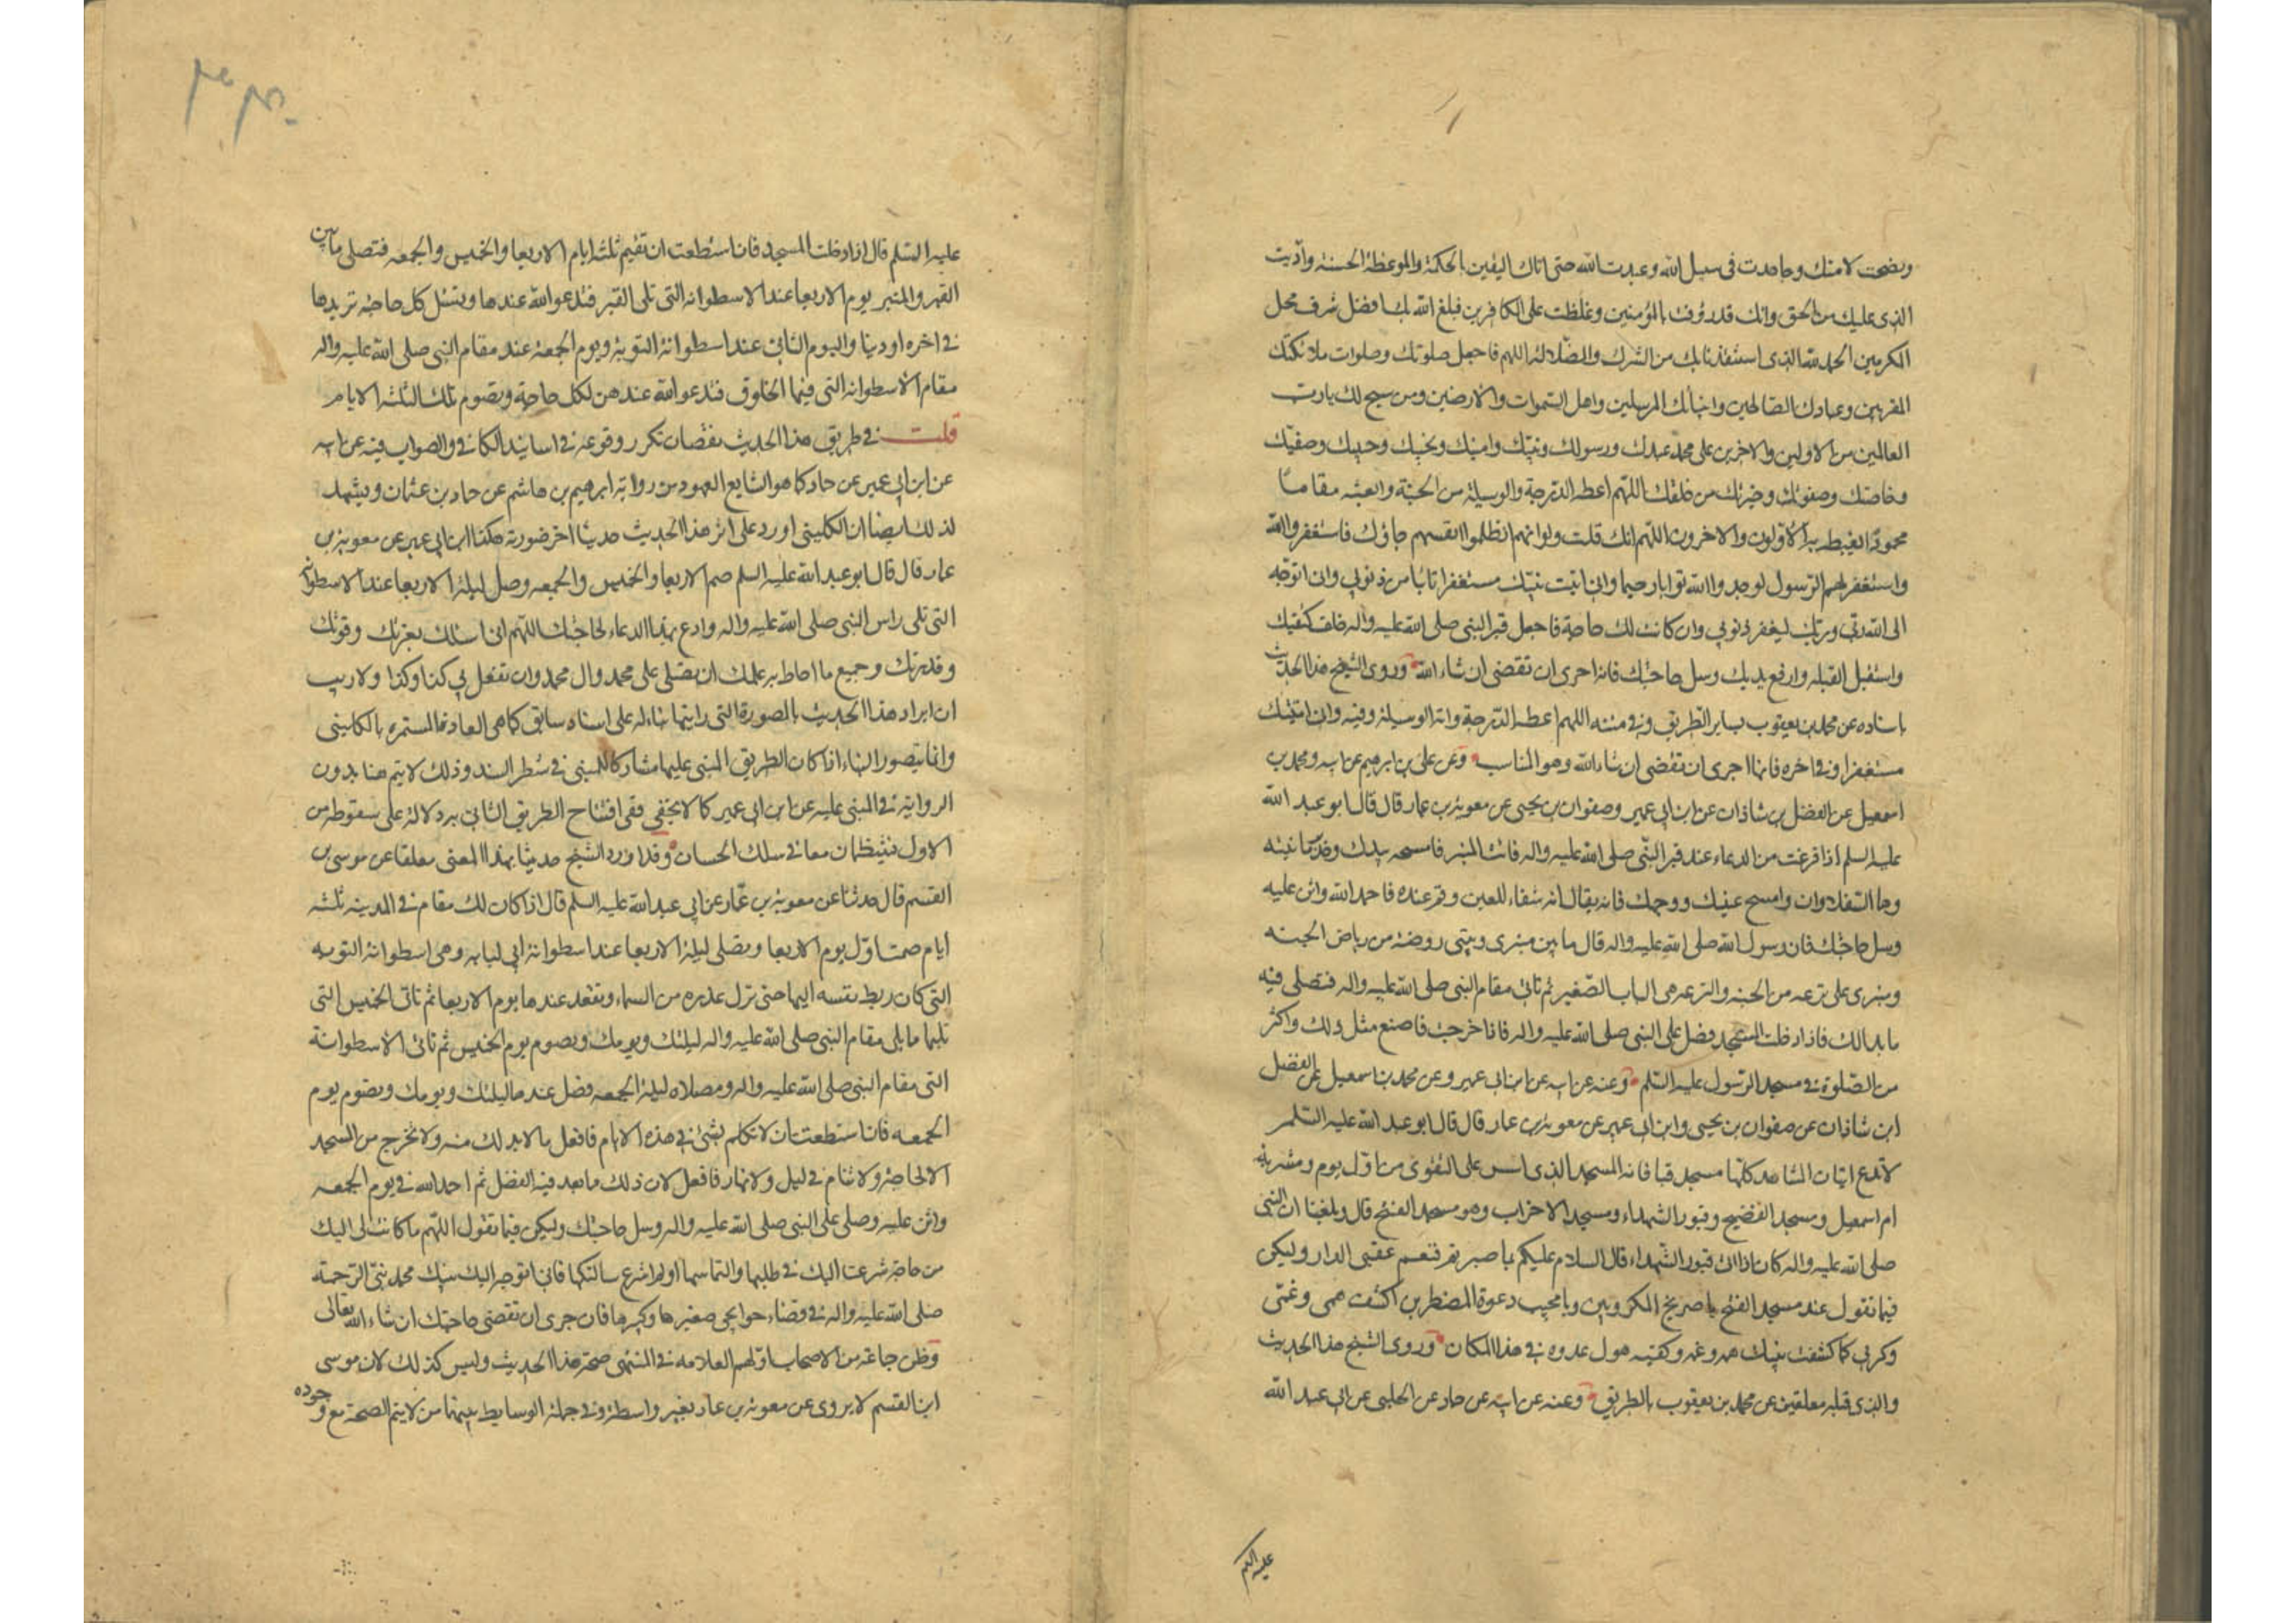 ونصحت لامتك وجاهدت فى سبيل الله وعبدت الله حتى اتاك اليقين بالحكمة والموعظة الحسنة واديت
الذى عليك من الحق وانك قد رؤفت بالمؤمنين وغلظت على الكافرين فبلغ الله بك افضل شرف محل
المكرمين الحمد لله الذى استنقذنا بك من الشرك والضلالة اللهم فاجعل صلوتك وصلوات ملائكتك
المقربين وعبادك الصالحين وانبيائك المرسلين واهل السموات والارضين ومن سبح لك يا رب
العالمين من الاولين والاخرين على محمد عبدك ورسولك ونبيك وامينك ونجيك وحبيبك وصفيك
وخاصتك وصفوتك وخيرتك من خلقك اللهم اعطه الدرجة والوسيلة من الجنة وابعثه مقاما
محمودا يغبطه به الاولون والاخرون اللهم انك قلت ولو انهم اذ ظلموا انفسهم جاؤك فاستغفروا الله
واستغفر لهم الرسول لوجدوا الله توابا رحيما وانى اتيت نبيك مستغفرا تائبا من ذنوبى وانى اتوجه
الى الله ربى وربك ليغفر ذنوبى وان كانت لك حاجة فاجعل قبر النبى صلى الله عليه واله خلف كتفيك
واستقبل القبله وارفع يديك وسل حاجتك فانه احرى ان تقضى ان شاء الله وروى الشيخ هذا الحديث
باسناده عن محمد بن يعقوب بساير الطريق وفى متنه اللهم اعطه الدرجة واته الوسيلة وفيه وان اتيتك
مستغفرا وفى اخره فانها احرى ان تقضى ان شاء الله وهو المناسب وعن على بن ابرهيم عن ابيه ومحمد بن
اسمعيل عن الفضل بن شاذان عن ابن ابى عمير وصفوان بن يحيى عن معوية بن عمار قال قال ابو عبد الله
عليه السلم اذا فرغت من الدعاء عند قبر النبى صلى الله عليه واله فائت المنبر فامسحه بيدك وخذ برمانتيه
وهما السفلاوان وامسح عينيك ووجهك فانه يقال انه شفاء للعين وقم عنده فاحمد الله واثن عليه
وسل حاجتك فان رسول الله صلى الله عليه واله قال ما بين منبرى وبيتى روضة من رياض الجنه
ومنبرى على ترعه من الجنه والترعه هى الباب الصغير ثم تاتى مقام النبى صلى الله عليه واله فتصلى فيه
ما بدالك فاذا دخلت المسجد فصل على النبى صلى الله عليه واله فاذا خرجت فاصنع مثل ذلك واكثر
من الصلوة فى مسجد الرسول عليه السلم وعنه عن ابيه عن ابن ابى عمير وعن محمد بن اسمعيل عن الفضل
ابن شاذان عن صفوان بن يحيى وابن ابى عمير عن معوية بن عمار قال قال ابو عبد الله عليه السلم
لا تدع اتيان المشاهد كلها مسجد قبا فانه المسجد الذى اسس على التقوى من اول يوم ومشربة
ام اسمعيل ومسجد الفضيخ وقبور الشهداء ومسجد الاحزاب وهو مسجد الفتح قال وبلغنا ان النبى
صلى الله عليه واله كان اذا اتى قبور الشهداء قال السلام عليكم بما صبرتم فنعم عقبى الدار وليكن
فيما تقول عند مسجد الفتح يا صريخ المكروبين ويا مجيب دعوة المضطرين اكشف همى وغمى
وكربى كما كشفت عن نبيك همه وغمه وكفيته هول عدوه فى هذا المكان وروى الشيخ هذا الحديث
والذى قبله معلقين عن محمد بن يعقوب بالطريق وعنه عن ابيه عن حماد عن الحلبى عن ابى عبد الله
عليه السلم
عليه السلم قال اذا دخلت المسجد فان استطعت ان تقيم ثلثة ايام الاربعا والخميس والجمعه فتصلى ما بين
القبر والمنبر يوم الاربعا عند الاسطوانه التى تلى القبر فتدعو الله عندها وتسئل كل حاجه تريدها
فى اخره او دنيا واليوم الثانى عند اسطوانة التوبة ويوم الجمعة عند مقام النبى صلى الله عليه واله
مقام الاسطوانه التى فيها الخلوق فتدعو الله عندهن لكل حاجة وتصوم تلك الثلثة الايام
قلت فى طريق هذا الحديث نقصان تكرر وقوعه فى اسانيد الكافى والصواب فيه عن ابيه
عن ابن ابى عمير عن حماد كما هو الشايع المعهود من رواية ابرهيم بن هاشم عن حماد بن عثمان ويشهد
لذلك ايضا ان الكلينى اورد على اثر هذا الحديث حديثا اخر صورته هكذا ابن ابى عمير عن معوية بن
عمار قال قال ابو عبد الله عليه السلم صم الاربعا والخميس والجمعه وصل ليلة الاربعا عند الاسطوانه
التى تلى راس النبى صلى الله عليه واله وادع بهذا الدعاء لحاجتك اللهم انى اسئلك بعزتك وقوتك
وقدرتك وجميع ما احاط به علمك ان تصلى على محمد وال محمد وان تفعل بى كذا وكذا ولا ريب
ان ايراد هذا الحديث بالصورة التى رايتها بناء له على اسناد سابق كما هى العادة المستمره بالكلينى
وانما يتصور البناء اذا كان الطريق المبنى عليها مشاركا للمبنى فى شطر السند وذلك لا يتم هنا بدون
الرواية فى المبنى عليه عن ابن ابى عمير كما لا يخفى ففى افتتاح الطريق الثانى به دلالة على سقوطه من
الاول فينتظمان معا فى سلك الحسان وقد اورد الشيخ حديثا بهذا المعنى معلقا عن موسى بن
القسم قال حدثنا عن معوية بن عمار عن ابى عبد الله عليه السلم قال اذا كان لك مقام فى المدينه ثلثه
ايام صمت اول يوم الاربعا وتصلى ليلة الاربعا عند اسطوانة ابى لبابه وهى اسطوانة التوبه
التى كان ربط نفسه اليها حتى نزل عذره من السماء وتقعد عندها يوم الاربعا ثم تاتى الخميس التى
تليها ما يلى مقام النبى صلى الله عليه واله ليلتك ويومك وتصوم يوم الخميس ثم تاتى الاسطوانة
التى مقام النبى صلى الله عليه واله ومصلاه ليلة الجمعه فصل عندها ليلتك ويومك وتصوم يوم
الجمعه فان استطعت ان لا تكلم بشئ فى هذه الايام فافعل ما لابد لك منه ولا تخرج من المسجد
الا لحاجة ولا تنام فى ليل ولا نهار فافعل لان ذلك ما يعد فيه الفضل ثم احمد الله فى يوم الجمعه
واثن عليه وصلى على النبى صلى الله عليه واله وسل حاجتك وليكن فيما تقول اللهم ما كانت لى اليك
من حاجة شرعت اليك فى طلبها والتماسها او لم اشرع سالتكها فانى اتوجه اليك بنبيك محمد نبى الرحمة
صلى الله عليه واله فى قضاء حوايجى صغيرها وكبيرها فان جرى ان تقضى حاجتك ان شاء الله تعالى
وظن جماعة من الاصحاب اولهم العلامه فى المنتهى صحة هذا الحديث وليس كذلك لان موسى
ابن القسم لا يروى عن معوية بن عمار بغير واسطة وفى جملة الوسايط بينهما من لا يتم الصحة مع وجوده